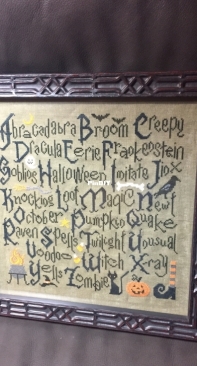 Abracadabra Broom Creepy
Dracula Eerie Frankenstein
Goblins Halloween Imitate Jinx
Knocking Loot Magic Newt
October Pumpkin Quake
Raven Spells Twilight Unusual
Voodoo Witch Xray
Yells Zombie